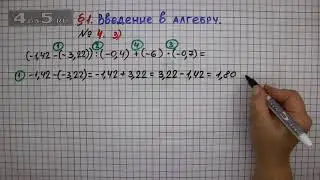 4 да 5.ru
§1. Введение в алгебру.
№ 4. 3)
1 2 4 3
(-1,42-(-3,22)):(-0,4)+(-6)·(-0,7)=
1 -1,42-(-3,22)=-1,42+3,22=3,22-1,42=1,80